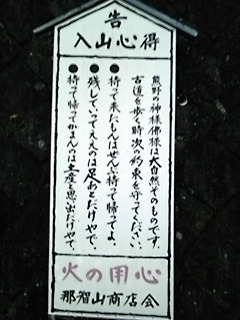 告
入山心得
熊野の神様佛様は大自然そのものです。
古道を歩く時次の約束を守ってください。
●持って来たもんはぜんぶ持って帰ってよ。
●残していってええのは足あとだけやで、
●持って帰ってかまんのは土産と思い出だけやで。
火の用心
那智山商店会